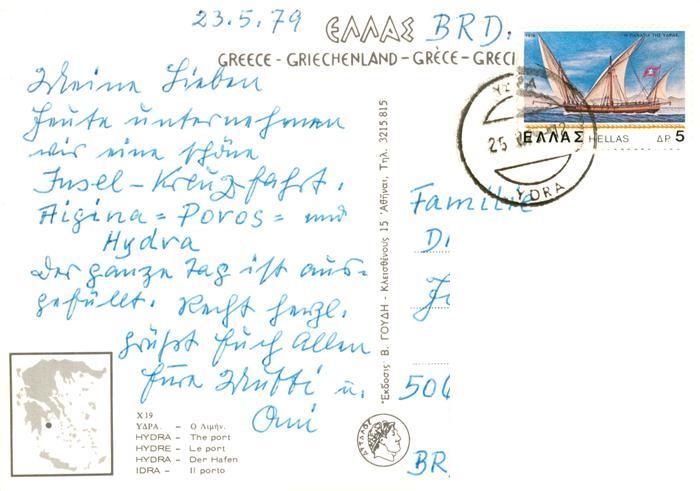 23.5.79
ΕΛΛΑΣ BRD.
GREECE - GRIECHENLAND - GRÈCE - GRECI
Meine Lieben
Heute unternehmen
wir eine schöne
Insel-Kreuzfahrt.
Aigina = Poros = und
Hydra
Der ganze Tag ist aus-
gefüllt. Recht herzl.
grüßt Euch Allen
Eure Mutti u.
Omi
1978 Η ΠΑΝΑΓΙΑ ΤΗΣ ΥΔΡΑΣ
ΕΛΛΑΣ HELLAS ΔΡ. 5
ΥΔΡΑ
25
YDRA
Familie
D
504
BR
Ἔκδοσις Β. ΓΟΥΔΗ - Κλεισθένους 15 Ἀθῆναι, Τηλ. 3215 815
ΑΤΤΑΛΟΣ
X 19
ΥΔΡΑ. - Ὁ Λιμήν.
HYDRA - The port
HYDRE - Le port
HYDRA - Der Hafen
IDRA - Il porto